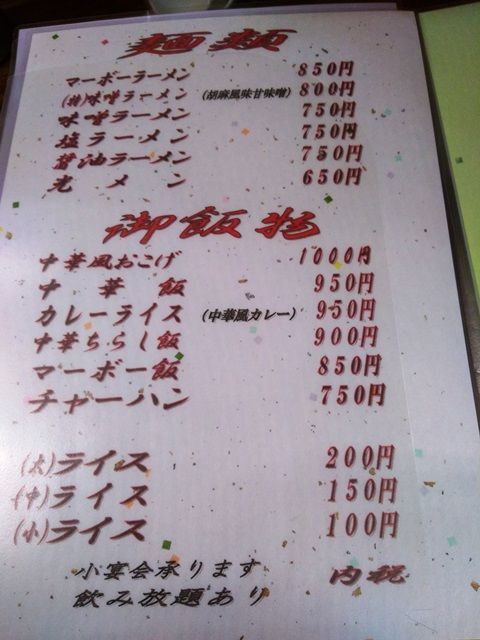 麺類
マーボーラーメン 850円
(特)味噌ラーメン (胡麻風味甘味噌) 800円
味噌ラーメン 750円
塩ラーメン 750円
醤油ラーメン 750円
光メン 650円
御飯物
中華風おこげ 1000円
中華飯 950円
カレーライス (中華風カレー) 950円
中華ちらし飯 900円
マーボー飯 850円
チャーハン 750円
(大)ライス 200円
(中)ライス 150円
(小)ライス 100円
小宴会承ります 内税
飲み放題あり